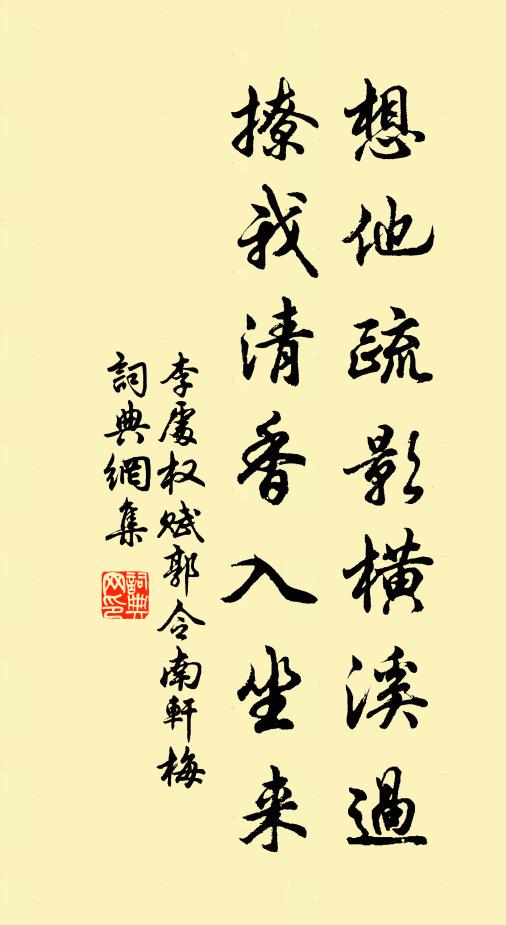 想他疏影橫溪過
撩我清香入坐来
李處权赋郭令南軒梅
詞典網集
詞典网印